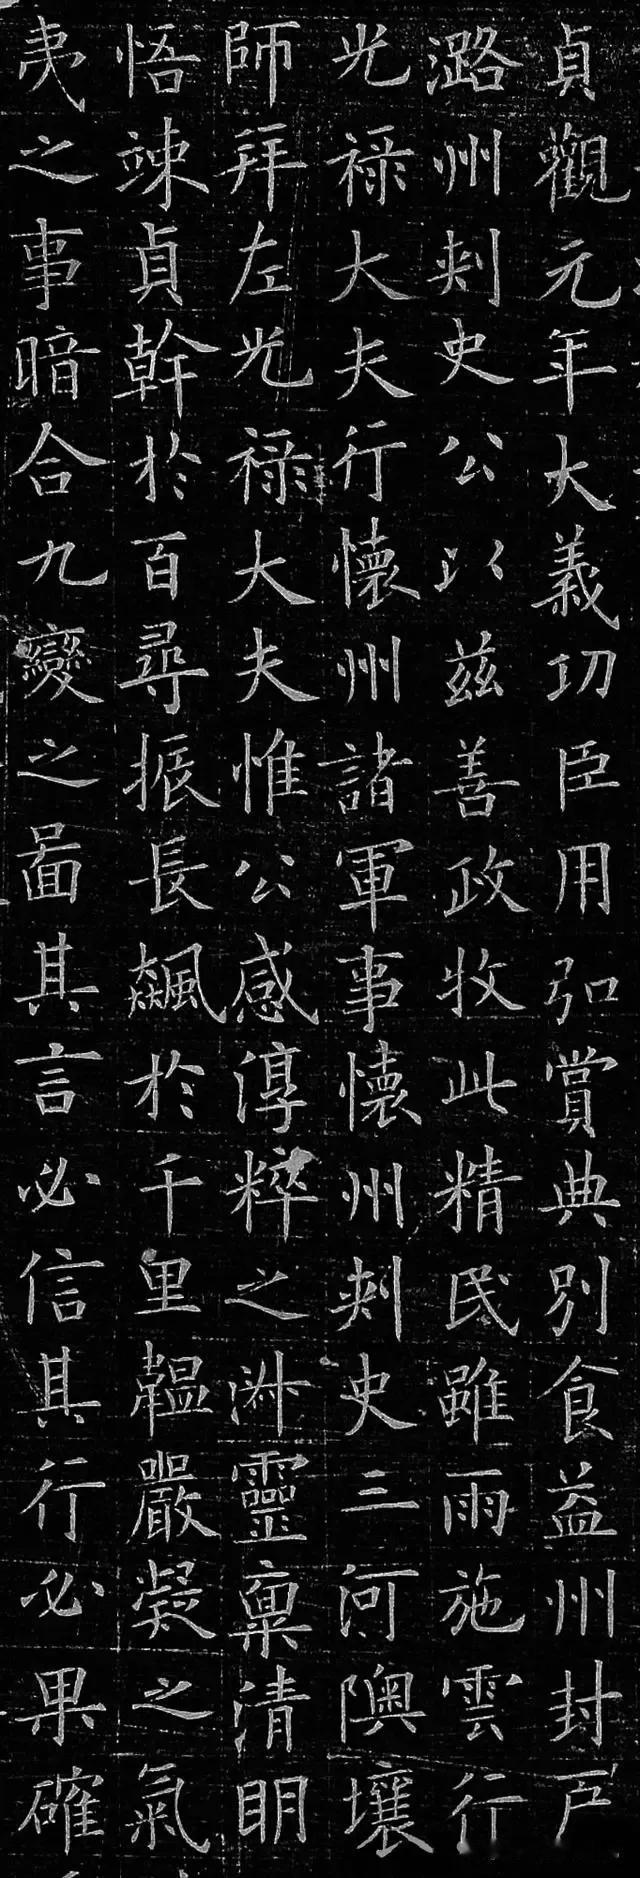 貞觀元年大義功臣用弘賞典別食益州封戶
潞州刾史公以茲善政牧此精民雖雨施雲行
光祿大夫行懷州諸軍事懷州刾史三河隩壤
師拜左光祿大夫惟公感淳粹之淑靈稟清明
悟竦貞幹於百尋振長飆於千里韞嚴凝之氣
夷之事暗合九變之啚其言必信其行必果確